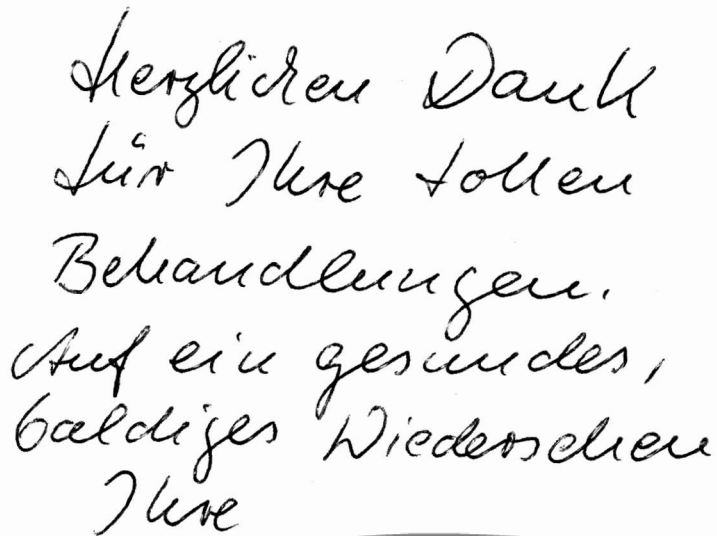 Herzlichen Dank
für Ihre tollen
Behandlungen.
Auf ein gesundes,
baldiges Wiedersehen
Ihre